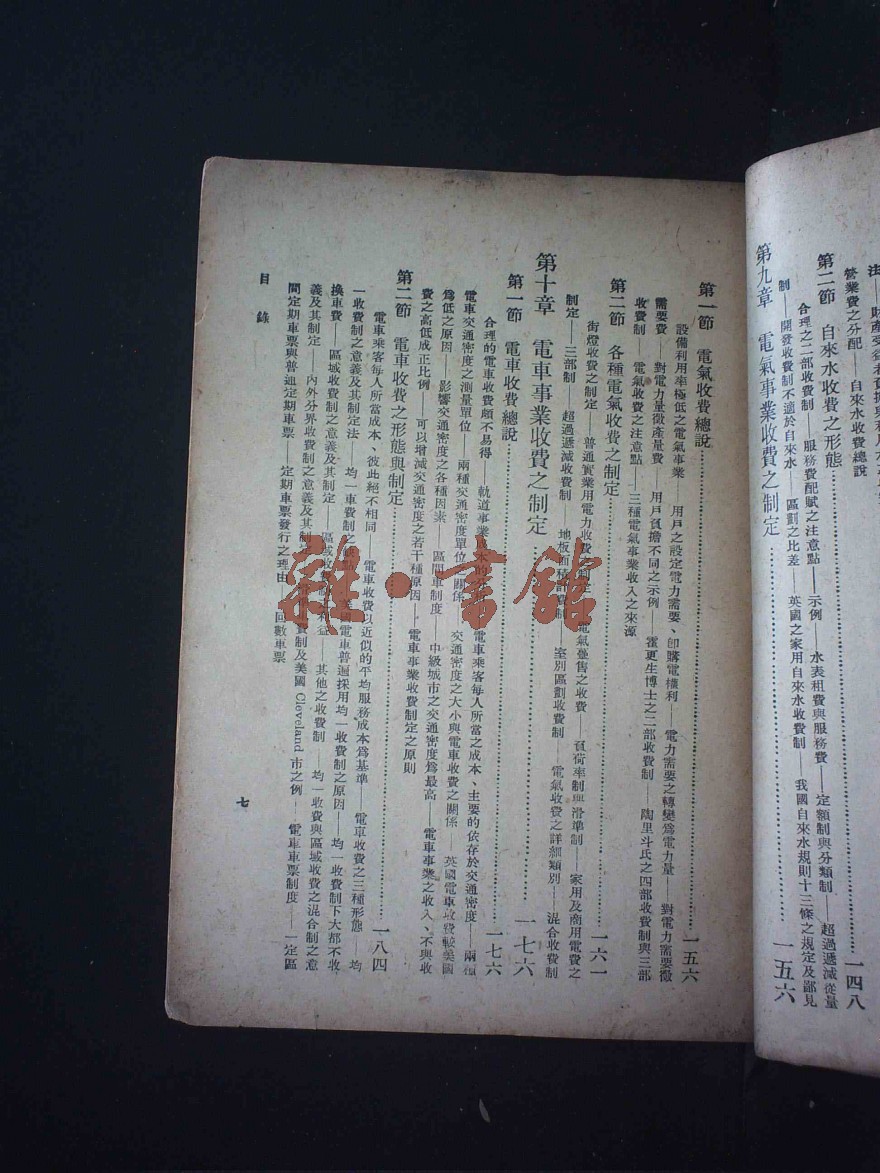 營業費之分配——自來水收費總說
第二節 自來水收費之形態……一四八
合理之二部收費制——服務費配賦之注意點——示例——水表租費與服務費——定額制與分類制——超過遞減從量
制——開發收費制不適於自來水——區劃之比差——英國之家用自來水收費制——我國自來水規則十三條之規定及鄙見
第九章 電氣事業收費之制定……一五六
第一節 電氣收費總說……一五六
設備利用率極低之電氣事業——用戶之設定電力需要、卽購電權利——電力需要之轉變爲電力量——對電力需要徵
需要費——對電力量徵產量費——用戶負擔不同之示例——霍更生博士之二部收費制——陶里斗氏之四部收費制與三部
收費制——電氣收費之注意點——三種電氣事業收入之來源
第二節 各種電氣收費之制定……一六一
街燈收費之制定——普通實業用電力收費之制定——電氣躉售之收費——負荷率制與滑準制——家用及商用電費之
制定——三部制——超過遞減收費制——地板面積計費制——室別區劃收費制——電氣收費之詳細類別——混合收費制
第十章 電車事業收費之制定……一七六
第一節 電車收費總說……一七六
合理的電車收費頗不易得——軌道事業成本的分析——電車乘客每人所當之成本、主要的依存於交通密度——兩種
電車交通密度之測量單位——兩種交通密度單位之關係——交通密度之大小與電車收費之關係——英國電車收費較美國
爲低之原因——影響交通密度之各種因素——區間車制度——中級城市之交通密度爲最高——電車事業之收入、不與收
費之高低成正比例——可以增減交通密度之若干種原因——電車事業收費制定之原則
第二節 電車收費之形態與制定……一八四
電車乘客每人所當成本、彼此絕不相同——電車收費以近似的平均服務成本爲基準——電車收費之三種形態——均
一收費制之意義及其制定法——均一車費制之缺點——美國電車普遍採用均一收費制之原因——均一收費制下大都不收
換車費——區域收費制之意義及其制定——區域收費制之利益——其他之收費制——均一收費與區域收費之混合制之意
義及其制定——內外分界收費制之意義及其制定——費制及美國 Cleveland 市之例——電車車票制度——一定區
間定期車票與普通定期車票——定期車票發行之理由——回數車票
目錄
七
雜·書館